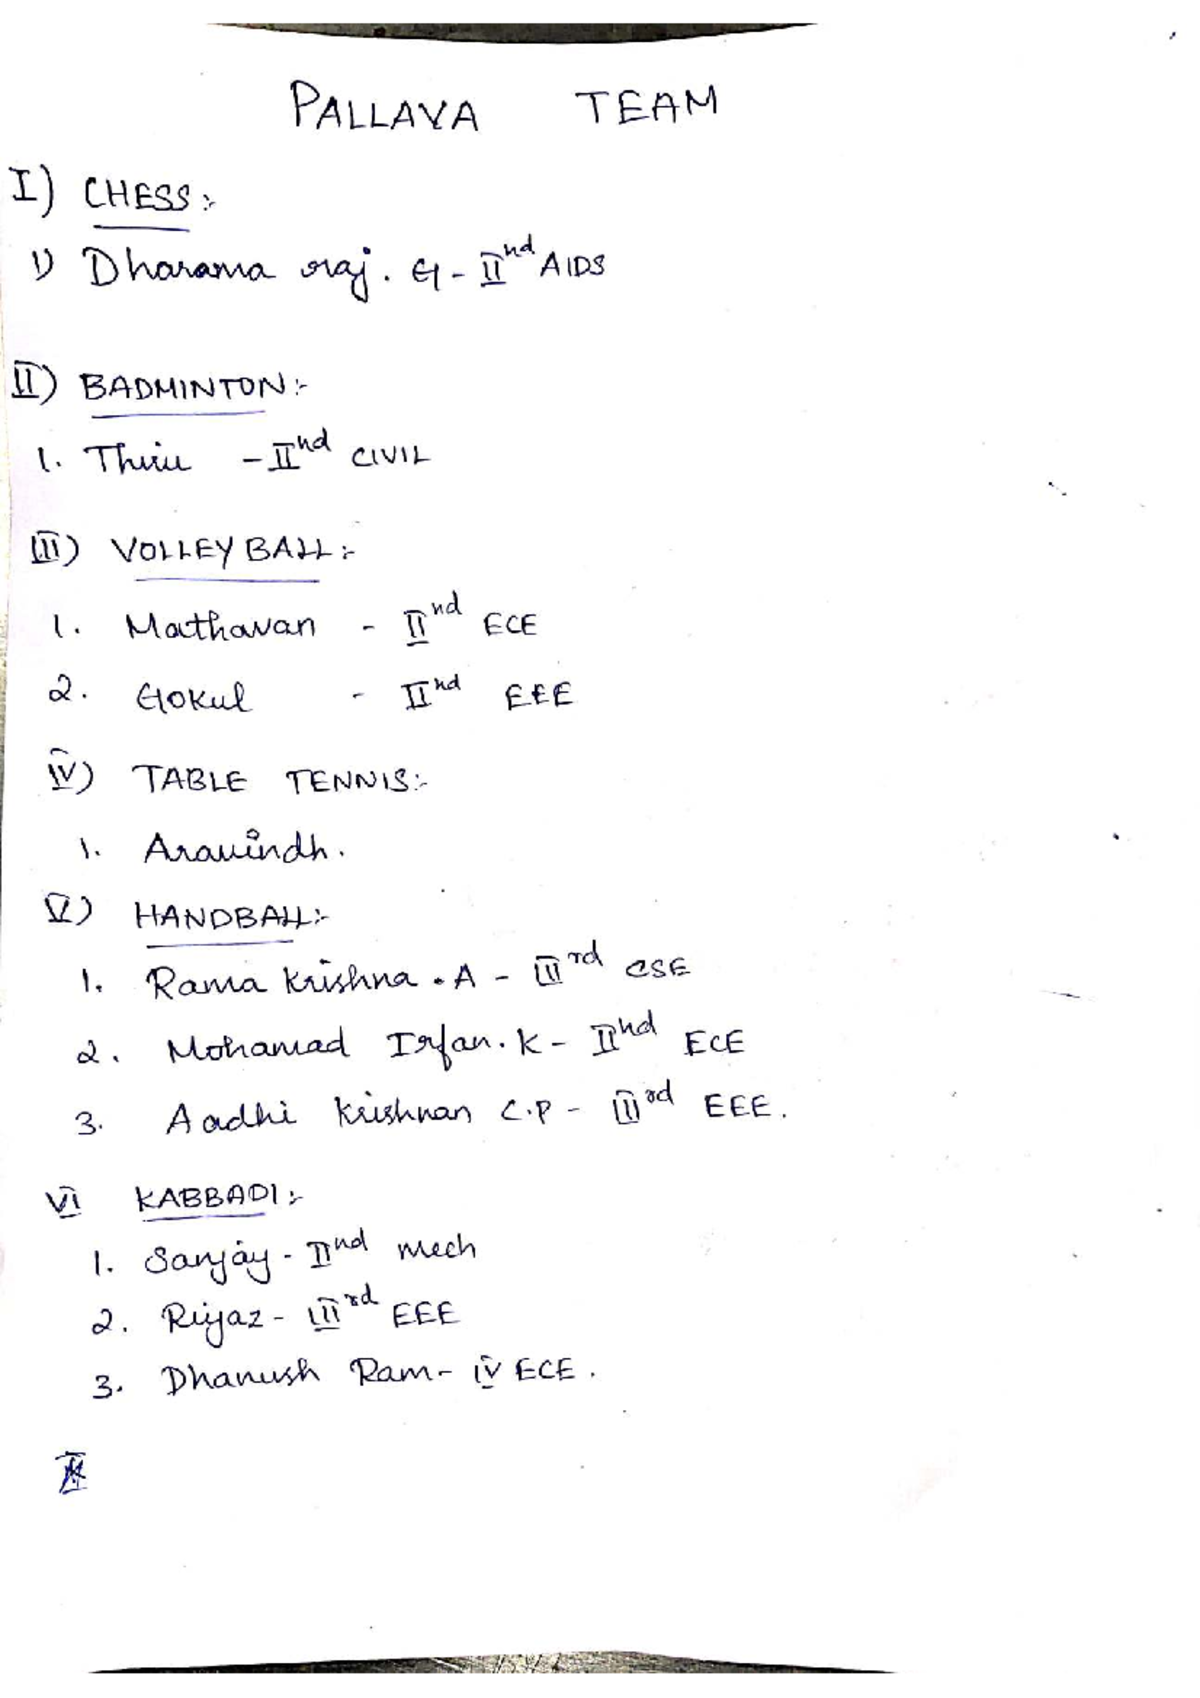 PALLAVA TEAM
I) CHESS :-
1) Dharama raj. G - IInd AIDS
II) BADMINTON :-
1. Thiru - IInd CIVIL
III) VOLLEY BALL :-
1. Mathavan - IInd ECE
2. Gokul - IInd EEE
IV) TABLE TENNIS :-
1. Aravindh.
V) HANDBALL :-
1. Rama Krishna . A - IIIrd CSE
2. Mohamad Irfan. K - IInd ECE
3. Aadhi Krishnan C.P - IIIrd EEE.
VI KABBADI :-
1. Sanjay - IInd Mech
2. Riyaz - IIIrd EEE
3. Dhanush Ram - IV ECE .